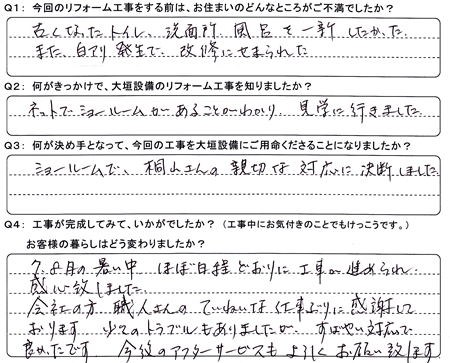 Q1: 今回のリフォーム工事をする前は、お住まいのどんなところがご不満でしたか?
古くなったトイレ、洗面所 風呂を一新したかった。
また、白アリ発生で、改修にせまられた
Q2: 何がきっかけで、大垣設備のリフォーム工事を知りましたか?
ネットでショールームがあることがわかり 見学に行きました
Q3: 何が決め手となって、今回の工事を大垣設備にご用命くださることになりましたか?
ショールームで、桐山さんの親切な対応に決断しました
Q4: 工事が完成してみて、いかがでしたか? (工事中にお気付きのことでもけっこうです。)
お客様の暮らしはどう変わりましたか?
7.8月の暑い中 ほぼ日程どおりに工事が進められ
感心致しました
会社の方 職人さんのていねいな仕事ぶりに感謝して
おります 少々のトラブルもありましたが、すばやい対応で
良かったです 今後のアフターサービスもよろしくお願い致します